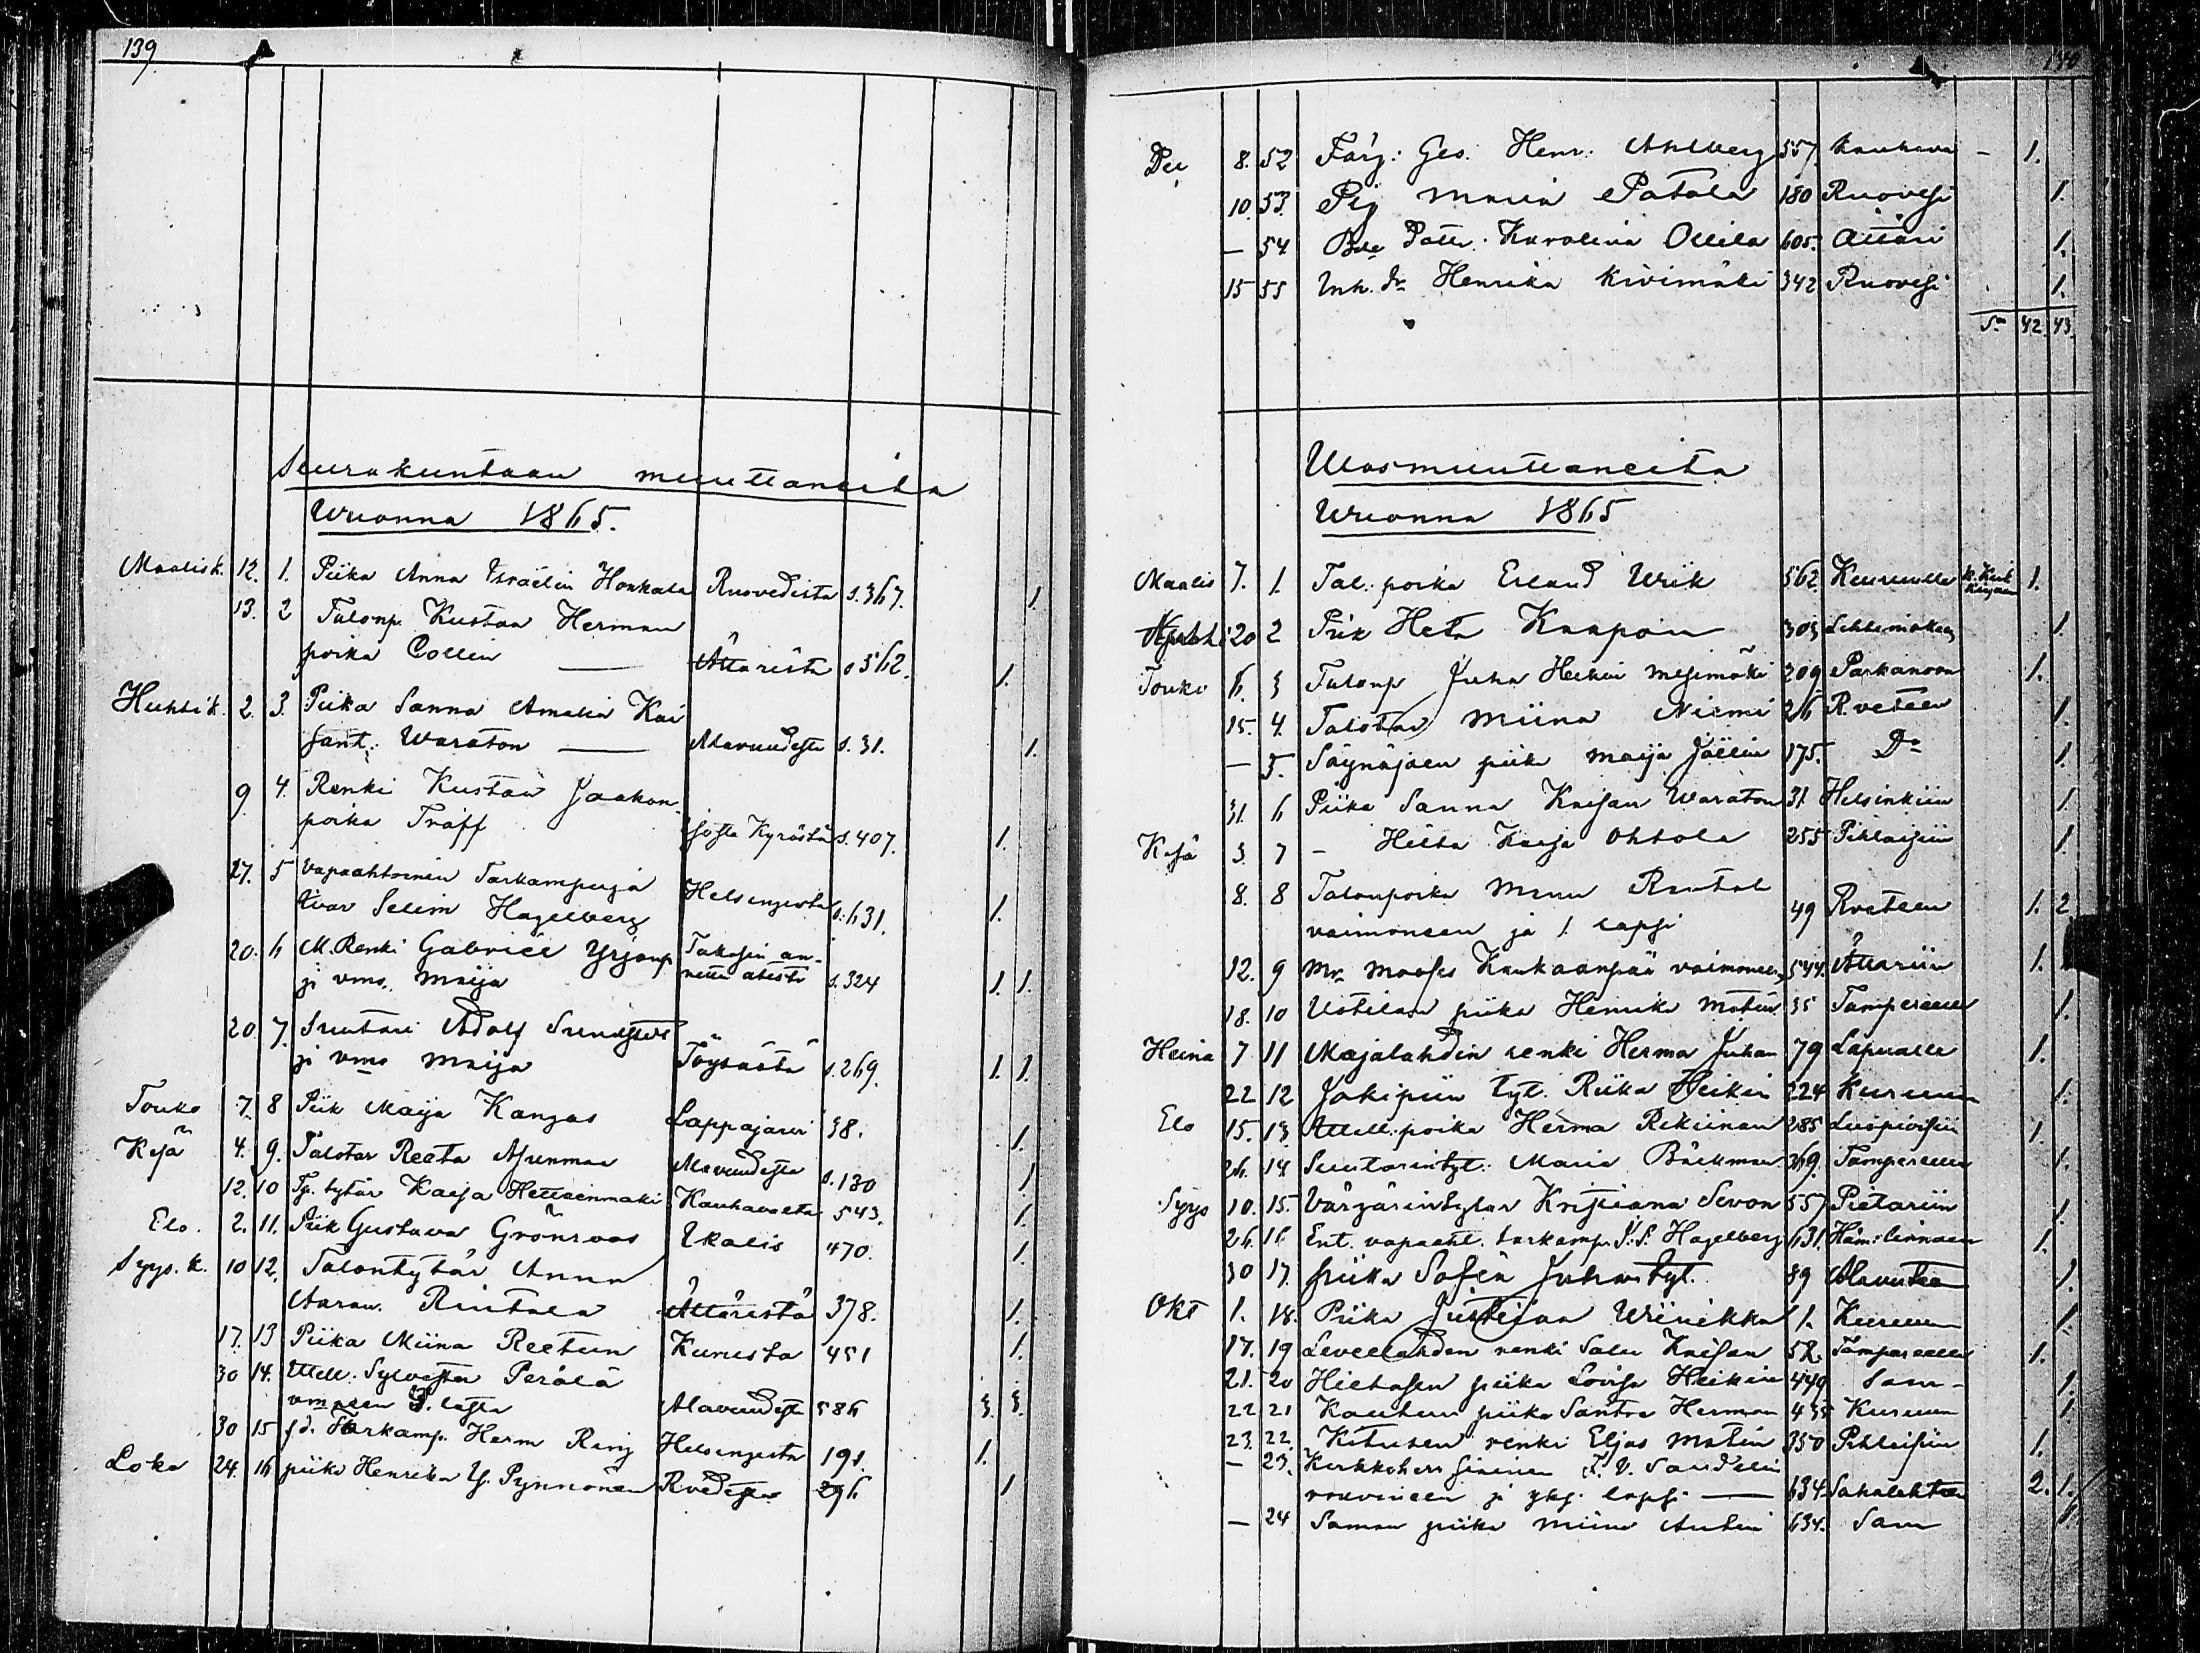 139
Seurakuntaan muuttaneita
Wuonna 1865.
Maalisk. 12. 1. Piika Anna Israelin Honkala Ruovedista s.367. 1.
13. 2 Talonp. Kustaa Herman
poika Collin — Ätäristä s 562. 1.
Huhtik. 2. 3. Piika Sanna Amalia Kai
sant. Waraton — Alavuudesta s. 31. 1.
9 4. Renki Kustaa Jaakon
poika Träff Isosta Kyröstä s. 407. 1.
27. 5 Vapaahtoinen Tarkampuja
Ivar Selim Hagelberg Helsingista s. 631. 1.
20. 6 M. Renki Gabriel Yrjönp
ja vmo. Maija s. 324 1. 1.
20 7. Suutari Adolf Sundstedt
ja vmo Maija Töysästä s. 269. 1. 1.
Touko 7. 8 Piik Maija Kangas Lappajärvi 38. 1.
Kesä 4. 9. Talotar Reeta Asunmaa Alavuudesta s. 130 1
12. 10 Tp. tytär Kaisa Hettoinmäki Kauhavalta 543. 1.
Elo. 2. 11. Piik Gustava Grönroos Ikalis 470. 1.
Syys. k. 10 12. Talontytär Anna
Aaraw. Rintala Ätäristä 378. 1.
17. 13 Piika Miina Reetun Kurusta 451 1.
30 14. Itsell. Sylvester Perälä
vmoseen 3. lasta Alavuudesta 586 3. 3.
30 15 fd. Tarkamp. Herm Ring Helsingista 191. 1.
Loka 24. 16 piika Henrika Y. Pynnönen Rvedestä 296 1
140
Dec 8. 52 Färg. Ges. Henr. Ahlberg 557. Kauhava — 1.
10. 53. Pig Maria Patala 180 Ruovesi 1.
— 54 Bde Dottr. Karolina Ollila 605. Ätäri 1.
15 55 Inh. Dr Henrika Kivimäki 342 Ruovesi 1.
Sa 42. 43.
Ulosmuuttaneita
Wuonna 1865
Maalis 7. 1. Tal. poika Erland Wiik 562. Keuruulle 1.
Huhti 20 2 Piik Heta Kaapoin 303 Lehtimäkeen 1.
Touko 6. 3 Talonp Juha Heikin Mesimäki 209 Parkanoon 1.
15. 4. Talotar Miina Niemi 26 R. veteen 1.
— 5. Säynäjoen piika Maija Joellin 175. Do 1.
31. 6 Piika Sanna Kaisan Waraton 31. Helsinkiin 1.
Kesä 3. 7 — Heta Kaisa Ohtola 255 Pihlaisiin 1.
8. 8 Talonpoika Manu Rintala
vaimoneen ja 1. lapsi 49 Rveteen 1. 2
12. 9 Mr Mooses Kankaanpää vaimoneen 544. Ätäriin 1.
18. 10 Uotilan piika Henrika Matin 35 Tampereelle 1.
Heinä 7 11 Majalahdin renki Herma Juhan 79 Lapualle 1.
22 12 Jokipiin tyt. Riika Heikin 224 Kuruun 1.
Elo 15. 13. Itsell. poika Herma Rekiinan 285 Luopioisiin 1.
26. 14. Suutarintyt. Maria Bäckman 369. Tampereelle 1.
Syys 10. 15. Värjärintytär Kristiana Sevon 557 Pietariin 1.
26. 16. Ent. vapaaht. tarkamp. J. S. Hagelberg 631. Häm:linnaan 1.
30 17. piika Sofia Juhantyt. 89 Alavuteen 1.
Okt 1. 18. Piika Justiina Wiinikka 1. Kuruun 1.
17. 19 renki Salu Kaisan 52. Tampereelle 1.
21. 20 Hietasen piika Lovisa Heikin 449 Sam- 1.
22 21 Kautun piika Santra Herman 435 Kuruun 1.
23. 22. Kitusen renki Eljas Matin 350 Pihlaisiin 1.
— 23. Kirkkoherr T. V. Sandelin
rouvineen ja yksi lapsi — 634 Sahalahteen 2. 1.
— 24 Saman piika Miina Antin 634. Sam 1.